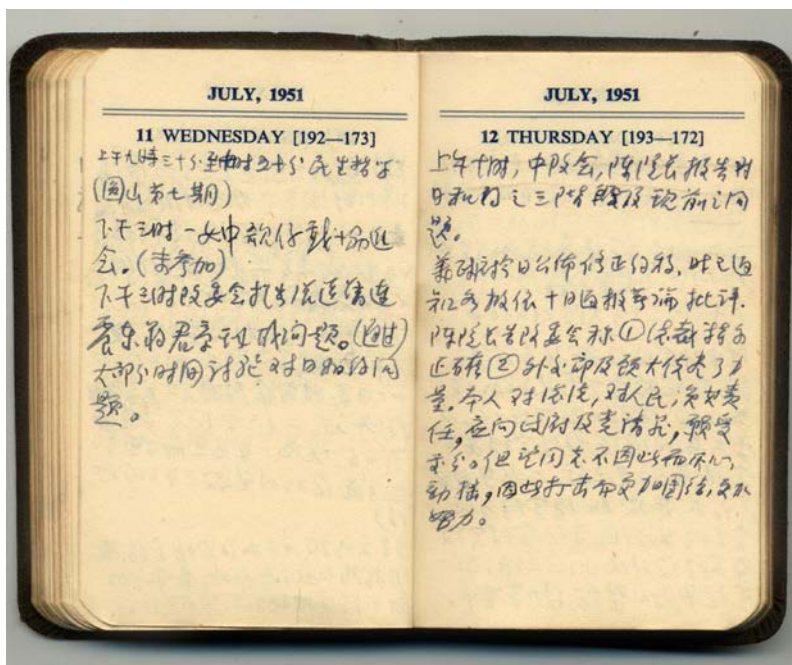 JULY, 1951
11 WEDNESDAY [192—173]
上午九時三十分至 时五十分民生哲学
(圆山第七期)
下午三时一女中歌仔戲 
会。(未参加)
下午三时改委会 连
震东 君章 问题。(通过)
大部分时间讨论对日和约问
题。
JULY, 1951
12 THURSDAY [193—172]
上午十时,中改会,陈院长报告对
日和约之三階段及现前之问
题。
美 於今日公佈修正约稿,
知各报依十日 批评.
陈院长告改委会称①总裁指示
正确②外交部及顾大使尽了力
量,本人对总统,对人民,负女责
任,应向政府及党请罪,願受
处分。但望同志不因此而灰心,
动摇,因此打击而更加團结,更加
努力。